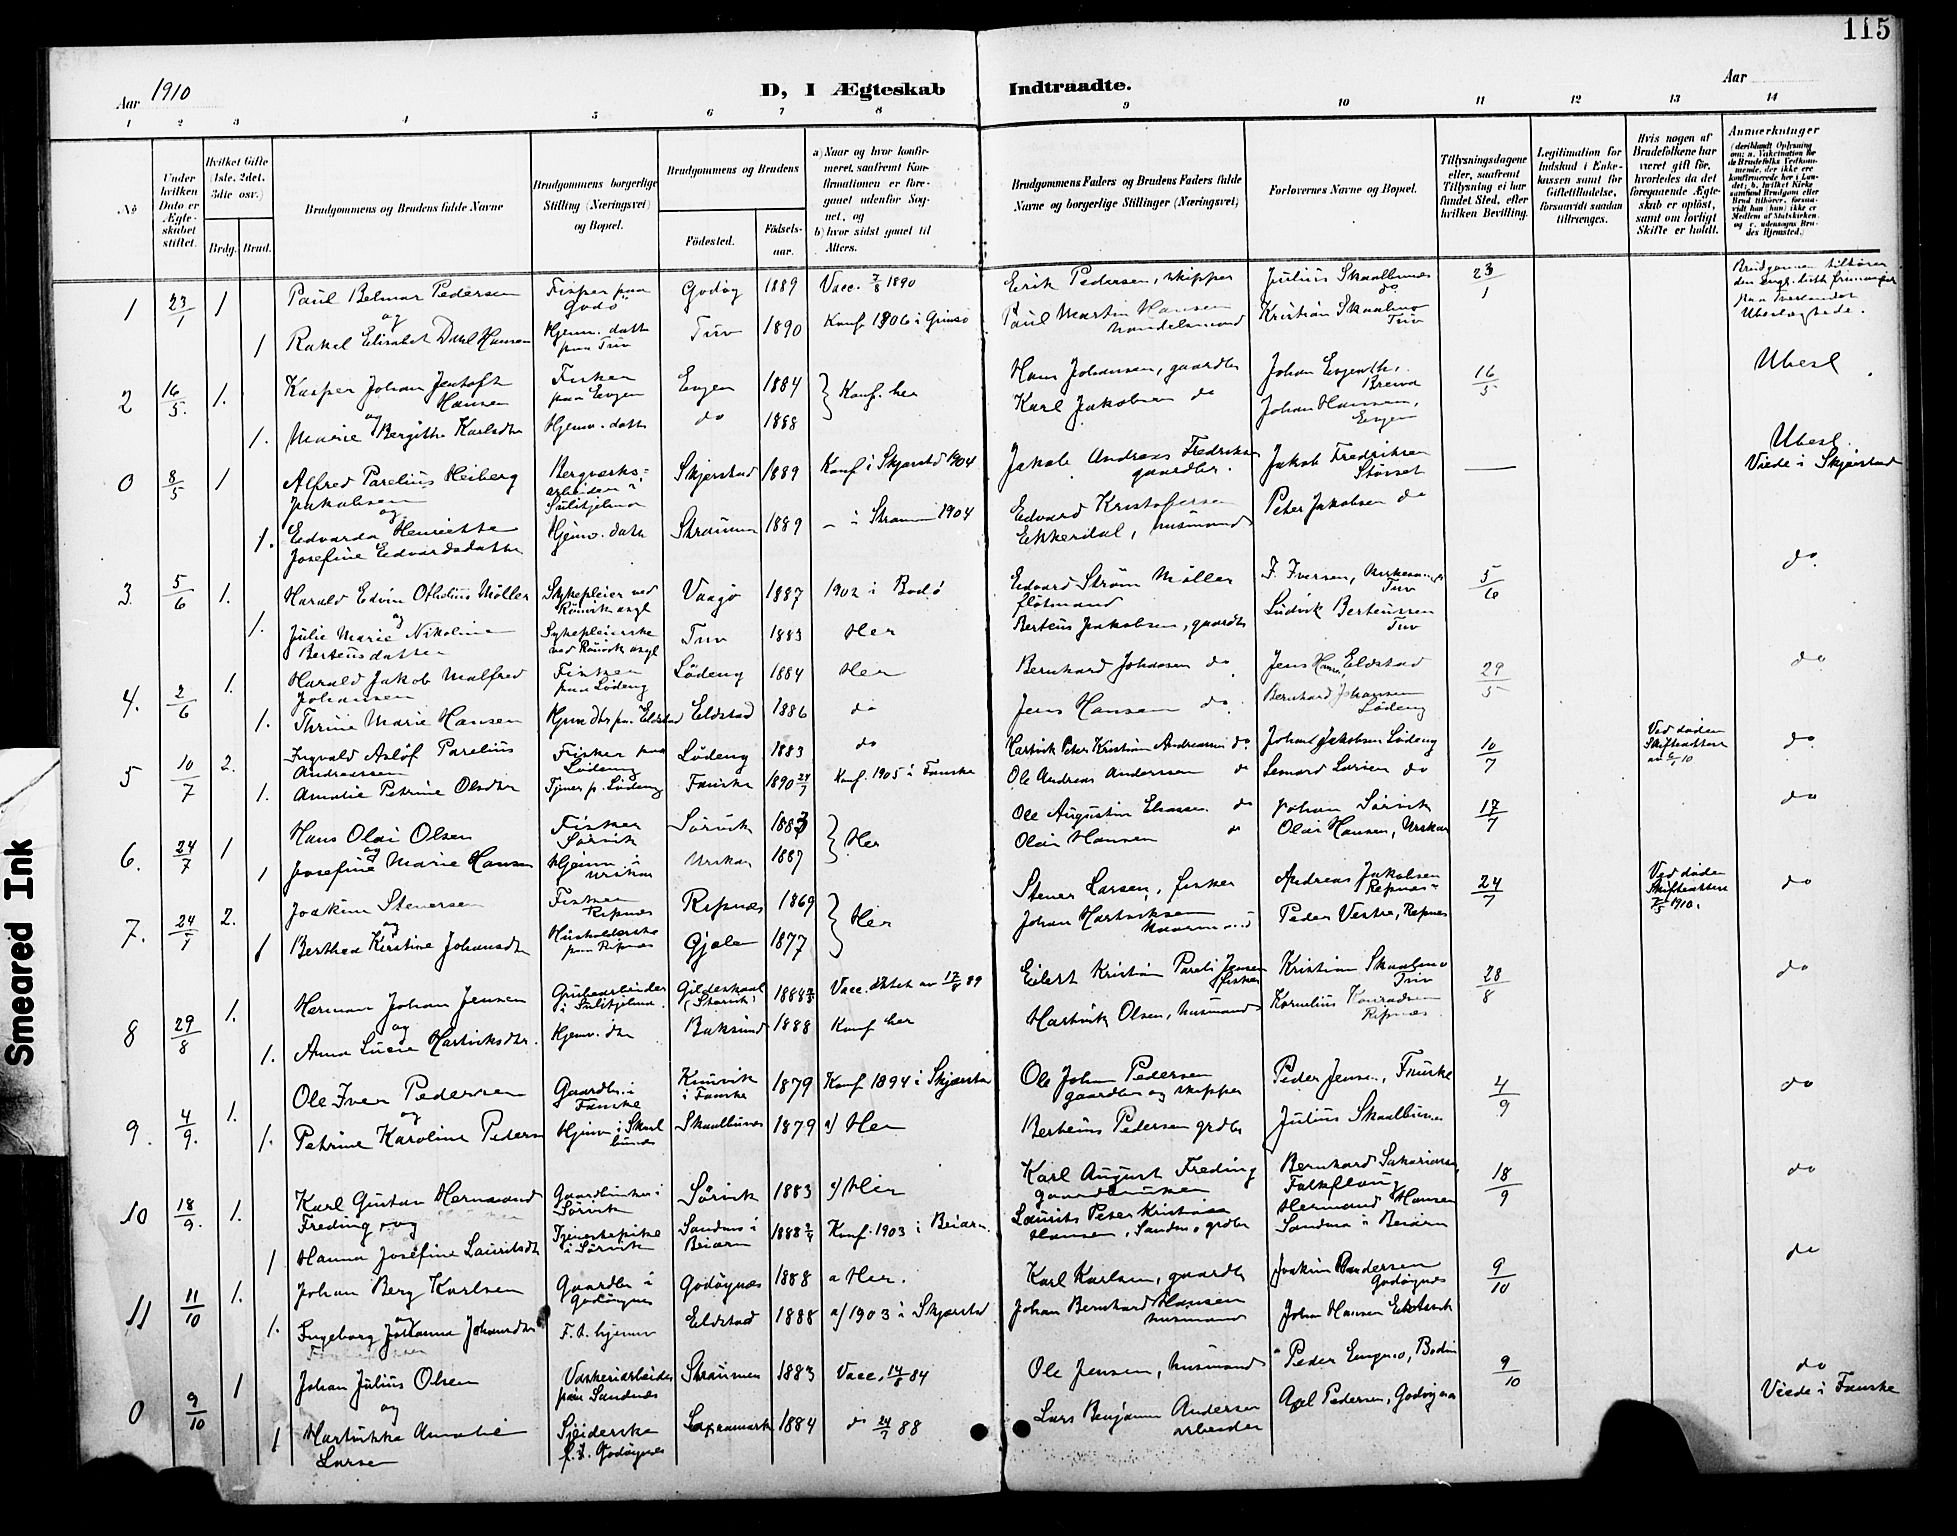 115
Aar 1910
D, I Ægteskab Indtraadte.
Aar
1 2 3 4 5 6 7 8 9 10 11 12 13 14
No
Under hvilken Dato er Ægteskabet stiftet.
Hvilket Gifte (1ste, 2det, 3die osv.)
Brdg. Brud.
Brudgommens og Brudens fulde Navne
Brudgommens borgerlige Stilling (Næringsvei) og Bopæl.
Brudgommens og Brudens
Födested. Födselsaar.
a) Naar og hvor konfirmeret, saafremt Konfirmationen er foregaaet udenfor Sognet, og
b) hvor sidst gaaet til Alters.
Brudgommens Faders og Brudens Faders fulde Navne og borgerlige Stillinger (Næringsvei)
Forlovernes Navne og Bopæl.
Tillysningsdagene eller, saafremt Tillysning ei har fundet Sted, efter hvilken Bevilling.
Legitimation for Indskud i Enkekassen samt for Giftetilladelse, forsaavidt saadan tiltrænges.
Hvis nogen af Brudefolkene har været gift før, hvorledes da det foregaaende Ægteskab er opløst, samt om lovligt Skifte er holdt.
Anmerkninger
1 23/1 1 Paul Belmar Pedersen Fisker paa Godö Godøy 1889 Vacc. 7/8 1890 Erik Pedersen, skipper Julius Skaalbunes 23/1
og
1 Rakel Elisabet Dahl Hansen Hjemv. datt paa Tuv Tuv 1890 Konf 1906 i Gimsö Paul Martin Hansen handelsmand Kristian Skaalmo Tuv Ubeslægtede.
2 16/5. 1. Kasper Johan Jentoft Hansen Fisker paa Evgen Evgen 1884 Konf. her Hans Johansen, gaardbr Johan Evgenth, Breivik 16/5 Ubesl
og
1. Marie Bergitte Karlsdtr Hjemv. datt do 1888 Karl Jakobsen do Johan Hansen, Evgen
0 8/5 1 Alfred Parelius Heiberg Jakobsen Bergverksarbeider i Sulitjelma Skjerstad 1889 Konf i Skjerstad 1904 Jakob Andreas Fredriksen gaardbr. Jakob Fredriksen Störset — Ubesl. Viede i Skjerstad
og
1. Edvarda Henriette Josefine Edvardsdatter Hjemv. datt Straumen 1889 - i Straumen 1904 Edvard Kristoffersen Ekkerdal, husmand Peter Jakobsen do
3. 5/6 1. Harald Edvin Otholius Möller Sykepleier ved Rönvik asyl Vaagø 1887 1902 i Bodö Edvard Ström Möller F. Iversen, Tuv 5/6 do.
og
1. Julie Marie Nikoline Berteusdatter Sykepleierske ved Rönvik asyl Tuv 1883 Her Berteus Jakobsen, gaardbr Ludvik Berteussen Tuv
4. 2/6 1. Harald Jakob Malfred Johansen Fisker paa Löding Löding 1884 Her Bernhard Johansen do. Jens Hans. Eldstad 29/5 do
1. Thrine Marie Hansen Eldstad 1886 do Jens Hansen do. Bernhard Johansen Löding
5 10/7 2. Ingvald Aslof Parelius Andreassen Fisker paa Löding Löding 1883 do Hartvik Peter Kristian Andreassen do. Johan Jakobsen Löding 10/7 Ved döden do.
1. Amalie Petrine Olsdtr Tjener p. Löding Fauske 1890 24/7 Konf. 1905 i Fauske Ole Andreas Anderssen do Leonard Larsen do
6. 24/7 1 Hans Olai Olsen Fisker Sörvik Sörvik 1883 Her Ole Augustin Eliassen do Johan Sörvik 17/7 do
og
1 Josefine Marie Hansen Hjemv. i Urskar Urskar 1887 Olai Hansen do Olai Hansen, Urskar
7. 24/7 2. Joakim Steuersen Fisker Ripnæs Ripnæs 1869 Her Steuer Larsen, fisker Andreas Jakobsen Ripnæs 24/7 Ved döden 1910. do
og
1 Berthea Kirstine Johansdtr Husholderske paa Ripnæs Gjøla 1877 Johan Hartviksen Peder Vestre, Ripnæs
8 29/8 1. Herman Johan Jensen Grubearbeider i Sulitjelma. Gildeskaal 1884 Vacc. attest av 17/8 89 Eilert Kristian Pareli Jensen fisker Kristian Skaalmo Tuv 28/8 do
og
1. Anna Lucie Hartviksdtr. Hjemv. dtr Baksund 1888 Konf her Hartvik Olsen, husmand Kornelius Konradsen Ripnæs
9. 4/9. 1. Ole Iver Pedersen Gaardbr. i Fauske Kvitvik i Fauske 1879 Konf 1894 i Skjerstad Ole Johan Pedersen gaardbr og skipper Peder Jensen, Fauske 4/9 do
og
1. Petrine Karoline Pedersen Hjemv i Skaalbunes Skaalbunes 1879 a) Her Berteus Pedersen grdbr Julius Skaalbunes
10 18/9. 1. Karl Gustav Hermand Freding, og Gaardbruker i Sörvik Sörvik 1883 a) Her Karl August Freding gaardbruker Bernhard Sakariassen, Falkflaug 18/9 do
1 Hanna Josefine Lauritsdtr Tjenestepike i Sörvik Sandnes i Beiarn 1888 Konf. 1903 i Beiarn Laurits Peter Kristian Hansen, Sandnes grdbr Hermand Hansen Sandnes i Beiarn
11 11/10 1. Johan Berg Karlsen Gaardbr i Godøynes Godøynes 1888 a Her. Karl Karlsen, gaardbr Joakim Pedersen Godøynes 9/10 do
og
1. Ingeborg Johanna Johansdtr F. t. hjemv Eldstad 1888 a) 1903 i Skjerstad Johan Bernhard Hansen husmand Johan Hansen
0 9/10 1 Johan Julius Olsen Vaskeriarbeider paa Sandnes Straumen 1883 Vacc. 14/8 84 Ole Jensen, husmand Peder Engmo, Bodin 9/10 do Viede i Fauske
og
1 Hartvikka Amalie Larsen f. t. Godøynes Saxenmark 1884 do 24/7 88 Lars Benjamin Andersen arbeider Axel Pedersen, Godøynes
Smeared Ink